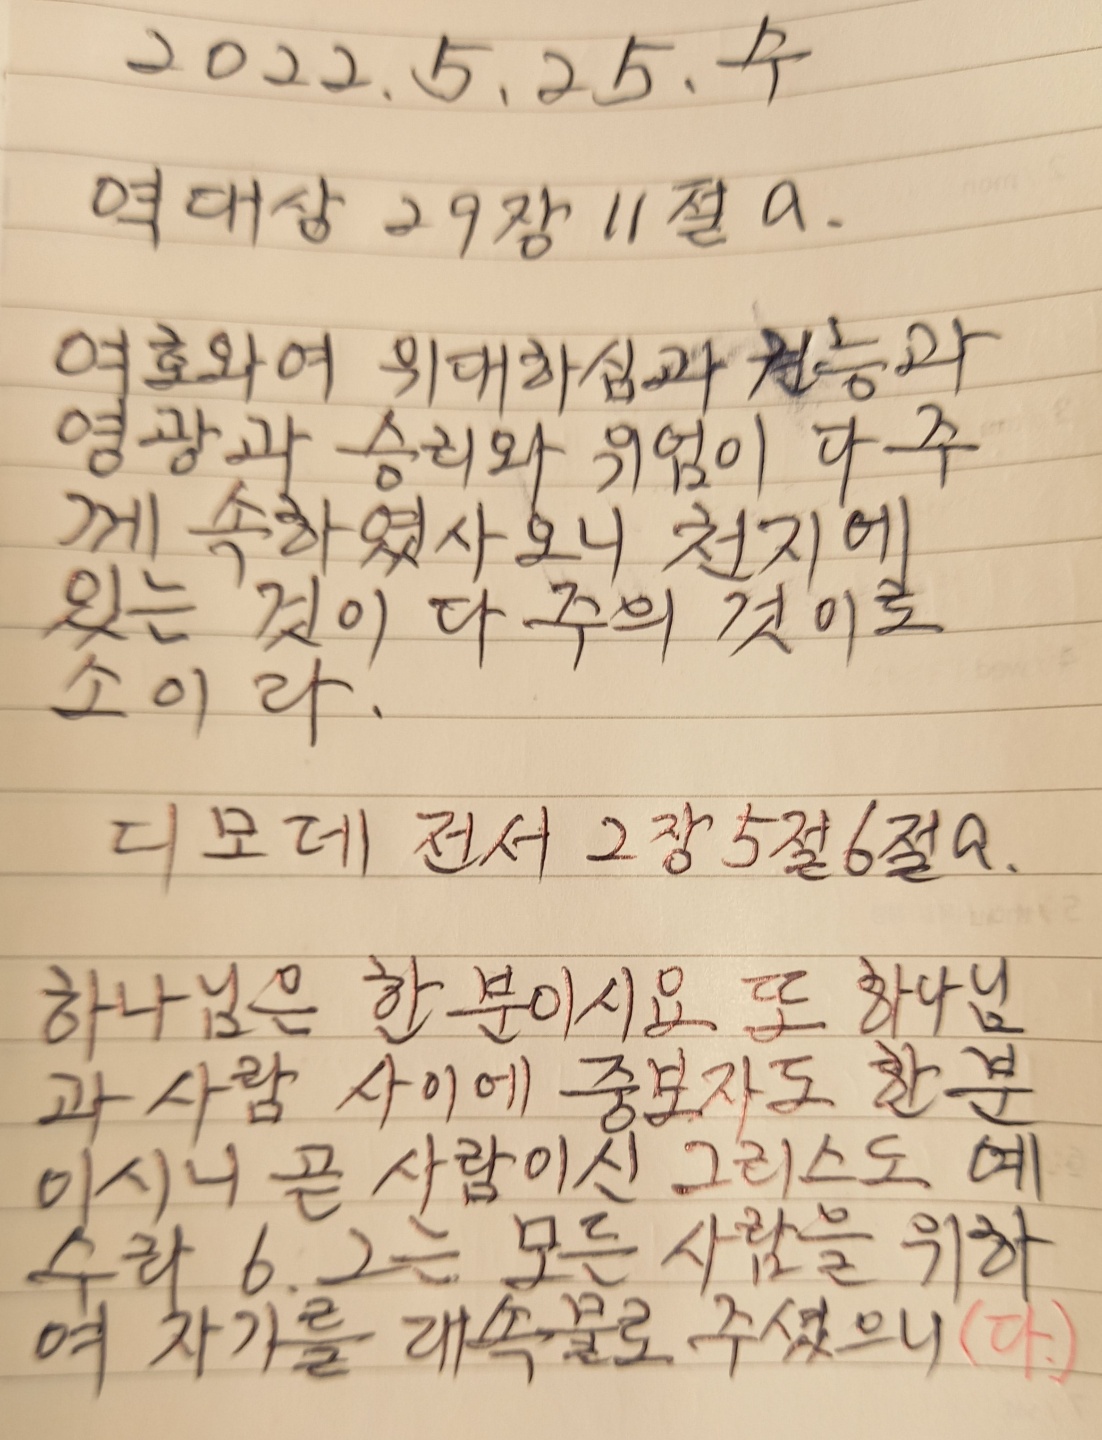 2022.5.25.수
역대상 29장 11절 a.
여호와여 위대하심과 권능과
영광과 승리와 위엄이 다 주
께 속하였사오니 천지에
있는 것이 다 주의 것이로
소이라.
디모데 전서 2장 5절 6절a.
하나님은 한 분이시요 또 하나님
과 사람 사이에 중보자도 한 분
이시니 곧 사람이신 그리스도 예
수라 6. 그는 모든 사람을 위하
여 자기를 대속물로 주셨으니(다.)